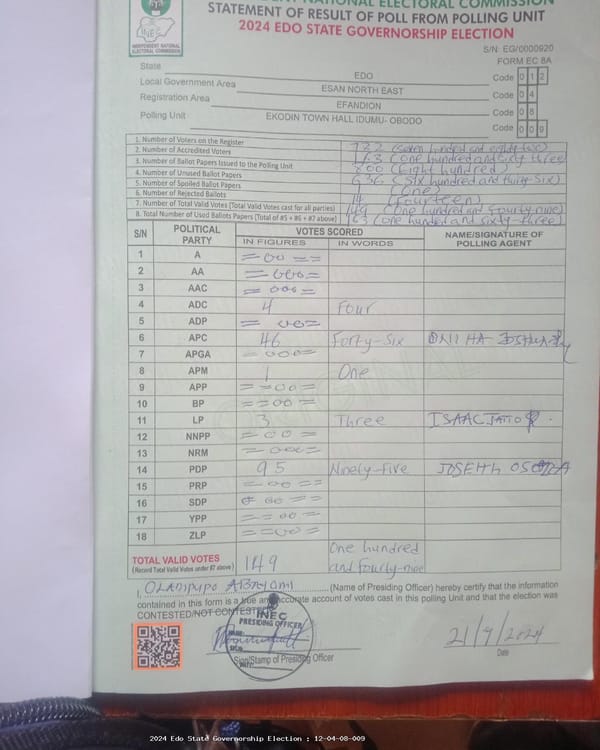 INDEPENDENT NATIONAL ELECTORAL COMMISSION
STATEMENT OF RESULT OF POLL FROM POLLING UNIT
2024 EDO STATE GOVERNORSHIP ELECTION
INEC
INDEPENDENT NATIONAL
ELECTORAL COMMISSION
S/N: EG/0000920
FORM EC 8A
State EDO Code 0 1 2
Local Government Area ESAN NORTH EAST Code 0 4
Registration Area EFANDION Code 0 8
Polling Unit EKODIN TOWN HALL IDUMU- OBODO Code 0 0 9
1. Number of Voters on the Register 782 (Seven hundred and eighty two)
2. Number of Accredited Voters 163 (One hundred and sixty three)
3. Number of Ballot Papers Issued to the Polling Unit 800 (Eight hundred)
4. Number of Unused Ballot Papers 636 (Six hundred and thirty Six)
5. Number of Spoiled Ballot Papers 1 (One)
6. Number of Rejected Ballots 14 (Fourteen)
7. Number of Total Valid Votes (Total Valid Votes cast for all parties) 149 (One hundred and fourty-nine)
8. Total Number of Used Ballots Papers (Total of #5 + #6 + #7 above) 163 (One hundred and sixty-three)
S/N POLITICAL PARTY VOTES SCORED NAME/SIGNATURE OF POLLING AGENT
IN FIGURES IN WORDS
1 A = 00 ==
2 AA = 000 =
3 AAC = 000 =
4 ADC 4 Four
5 ADP = 00 =
6 APC 46 Forty-Six
7 APGA = 000 =
8 APM 1 One
9 APP == 00 =
10 BP == 00 =
11 LP 3 Three ISAAC
12 NNPP = 00 =
13 NRM = 000 =
14 PDP 95 Ninety-Five JOSEPH
15 PRP = 00 ==
16 SDP 00 ==
17 YPP == 00 =
18 ZLP == 00 =
TOTAL VALID VOTES 149 One hundred and fourty-nine
(Record Total Valid Votes under #7 above)
I, OLADIPUPO ABAYOMI (Name of Presiding Officer) hereby certify that the information
contained in this form is a true and accurate account of votes cast in this polling Unit and that the election was
CONTESTED/NOT CONTESTED
INEC
PRESIDING OFFICER
NAME:
SIGN:
DATE:
Sign/Stamp of Presiding Officer
21/9/2024
Date
2024 Edo State Governorship Election : 12-04-08-009